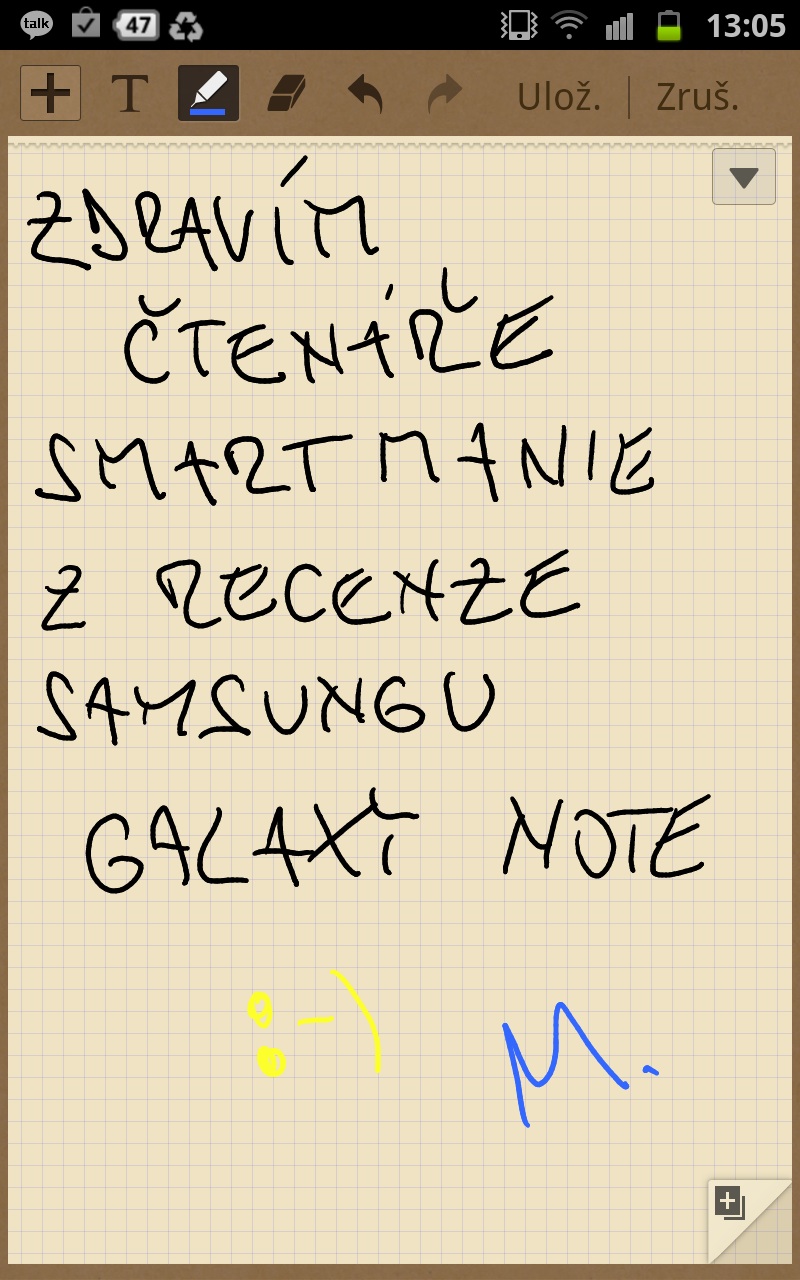 talk 47 13:05
T Ulož. Zruš.
ZDRAVÍM
ČTENÁŘE
SMARTMANIE
Z RECENZE
SAMSUNGU
GALAXY NOTE
:-) M.